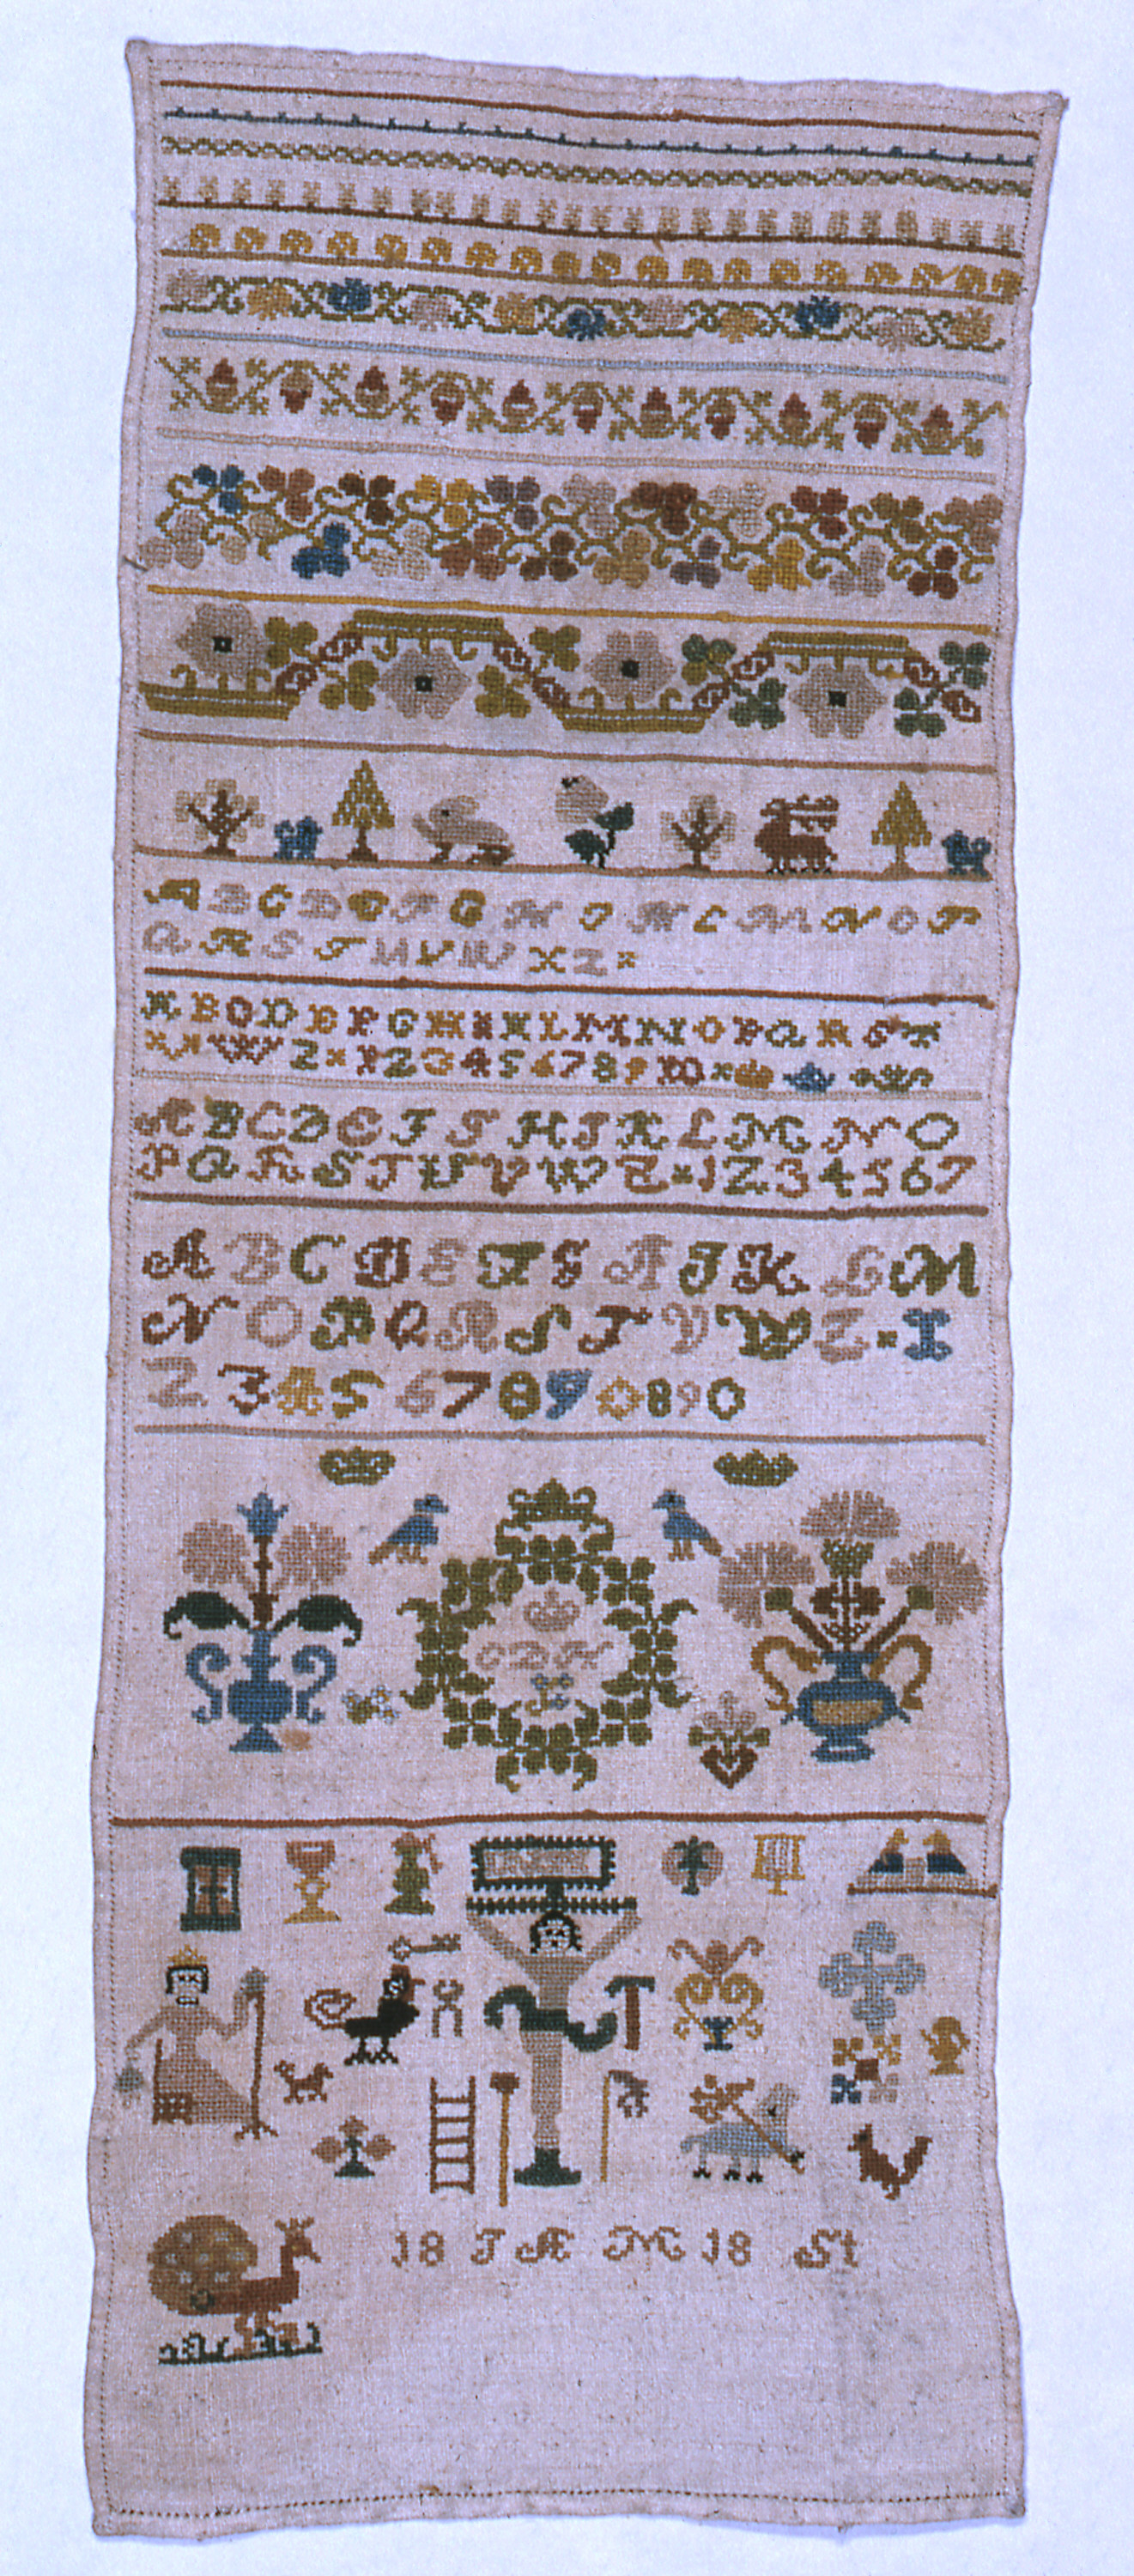 A B C D E F G H I K L M N O P
Q R S T U V W X Z
A B C D E F G H I K L M N O P Q R S T
V W Z 1 2 3 4 5 6 7 8 9 10
A B C D E F G H I K L M N O
P Q R S T U V W Z 1 2 3 4 5 6 7
A B C D E F G H I K L M
N O P Q R S T V W Z 1
2 3 4 5 6 7 8 9 0 8 9 0
18 I A M 18 St